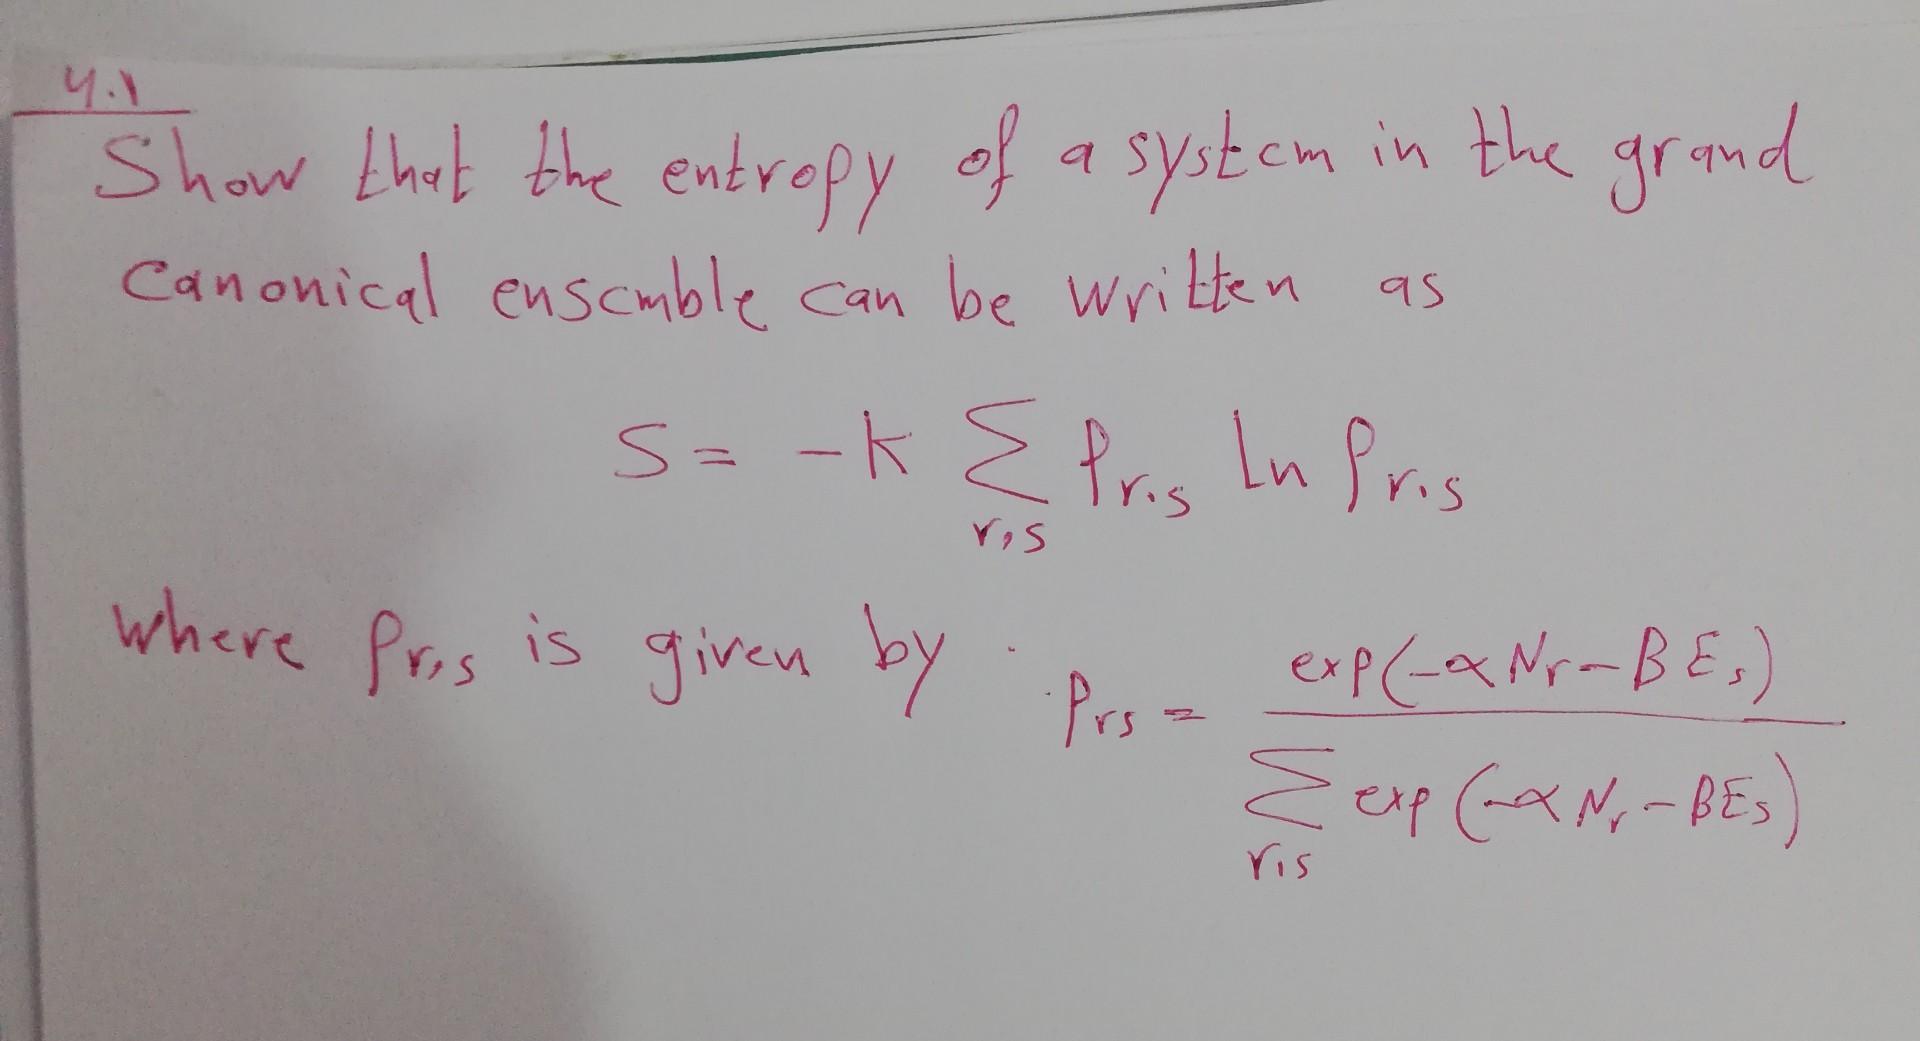 4.1
Show that the entropy of a system in the grand
canonical ensemble can be written as
S = -k Σ Pr,s ln Pr,s
r,s
where Pr,s is given by : Prs = exp(-αNr-βEs)
Σ exp(-αNr-βEs)
r,s